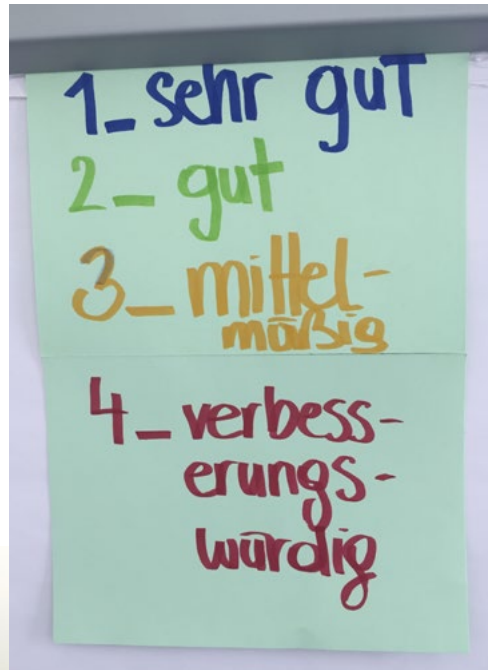 1_ sehr gut
2_ gut
3_ mittel-
mäßig
4_ verbess-
erungs-
würdig